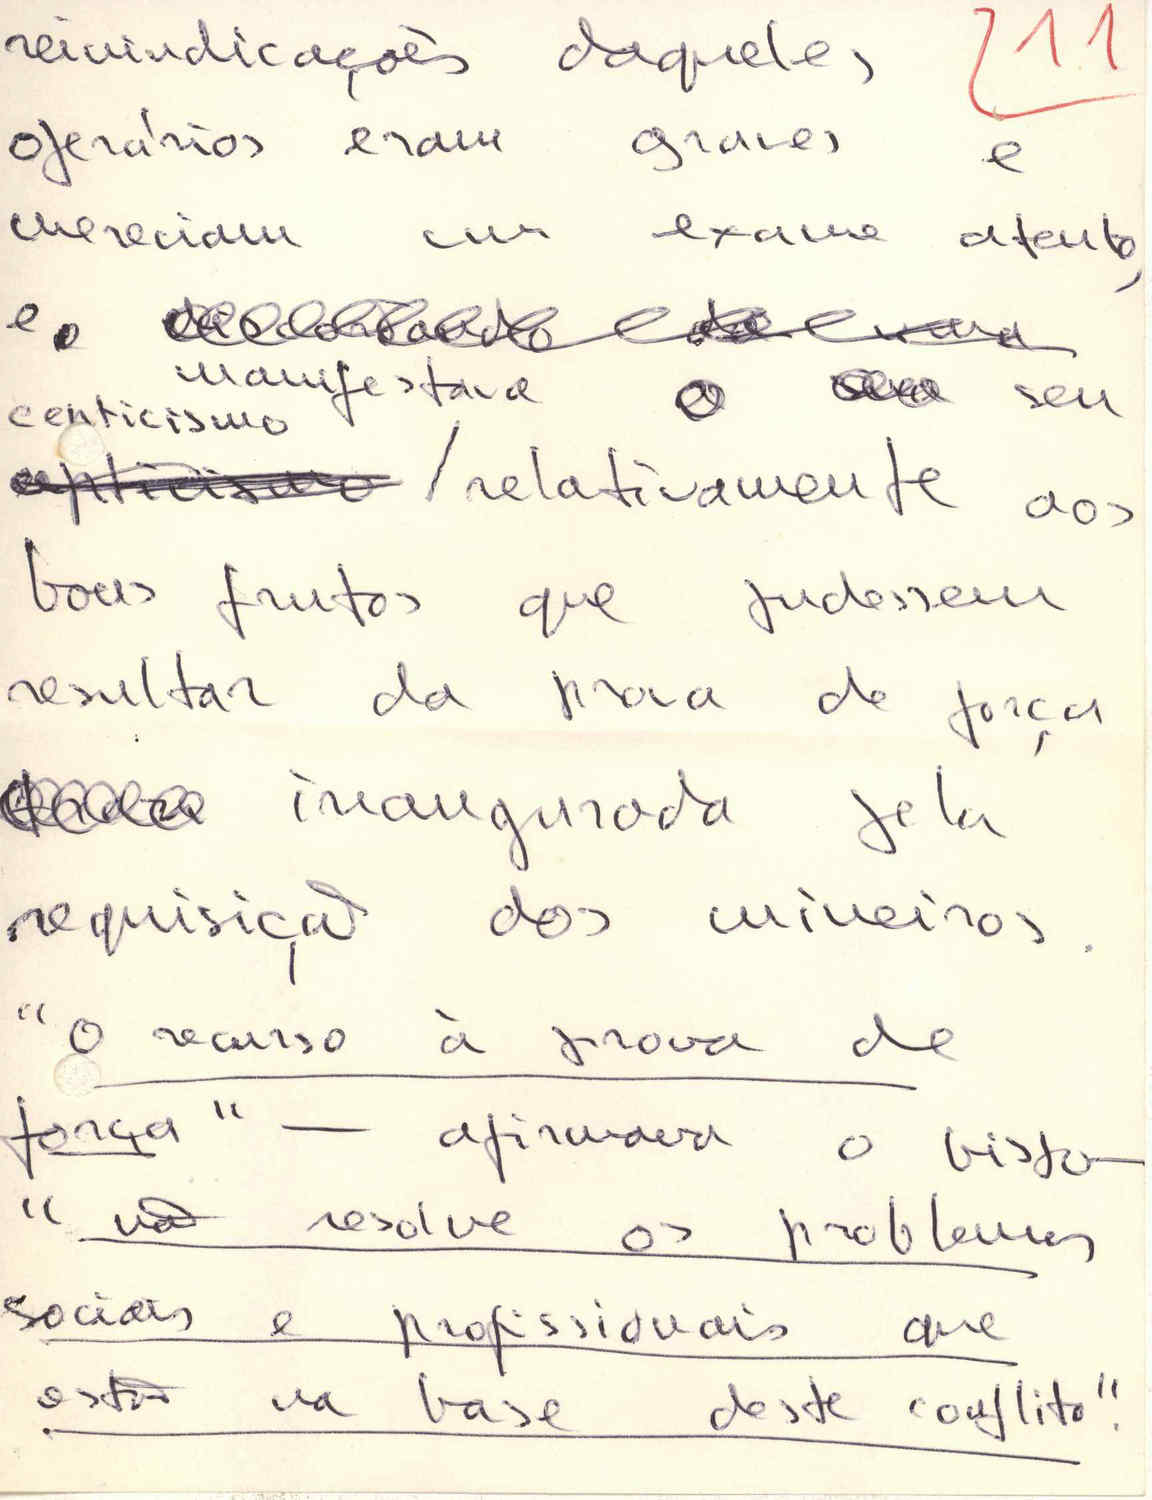 reivindicações daqueles 11
operários eram graves e
mereciam um exame atento,
e
manifestava o seu
cepticismo
cepticismo / relativamente aos
bons frutos que pudessem
resultar da prova de força
inaugurada pela
requisição dos mineiros.
"O recurso à prova de
força" — afirmava o bispo —
"não resolve os problemas
sociais e profissionais que
estão na base deste conflito".